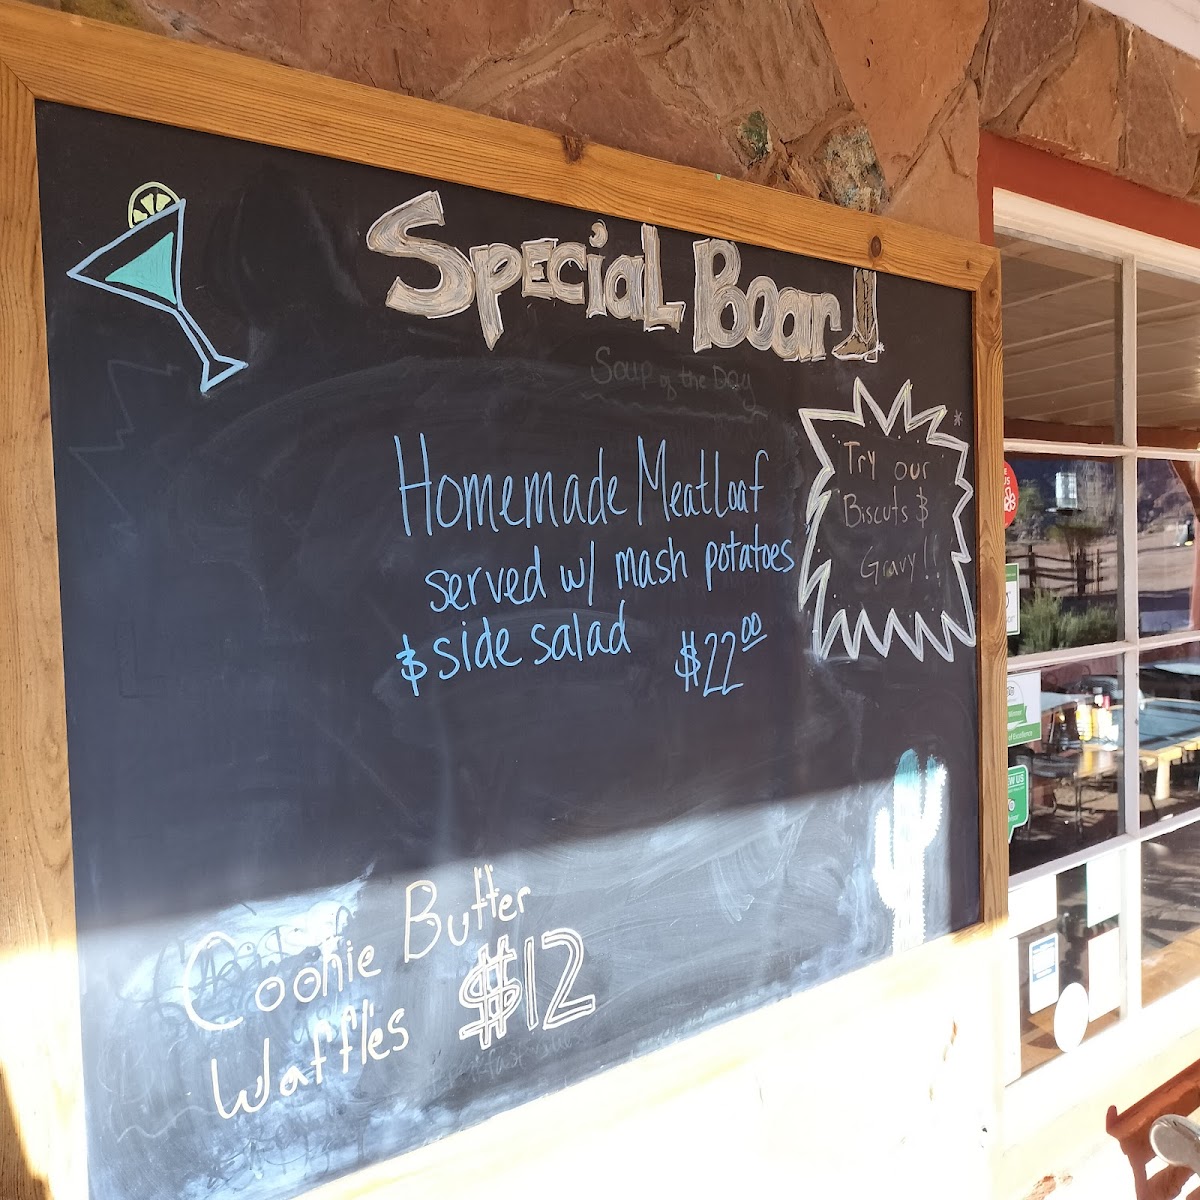 Special Board
Soup of the Day
Homemade Meatloaf
served w/ mash potatoes
& side salad $22.00
Try our
Biscuts &
Gravy!!
Cookie Butter
Waffles $12